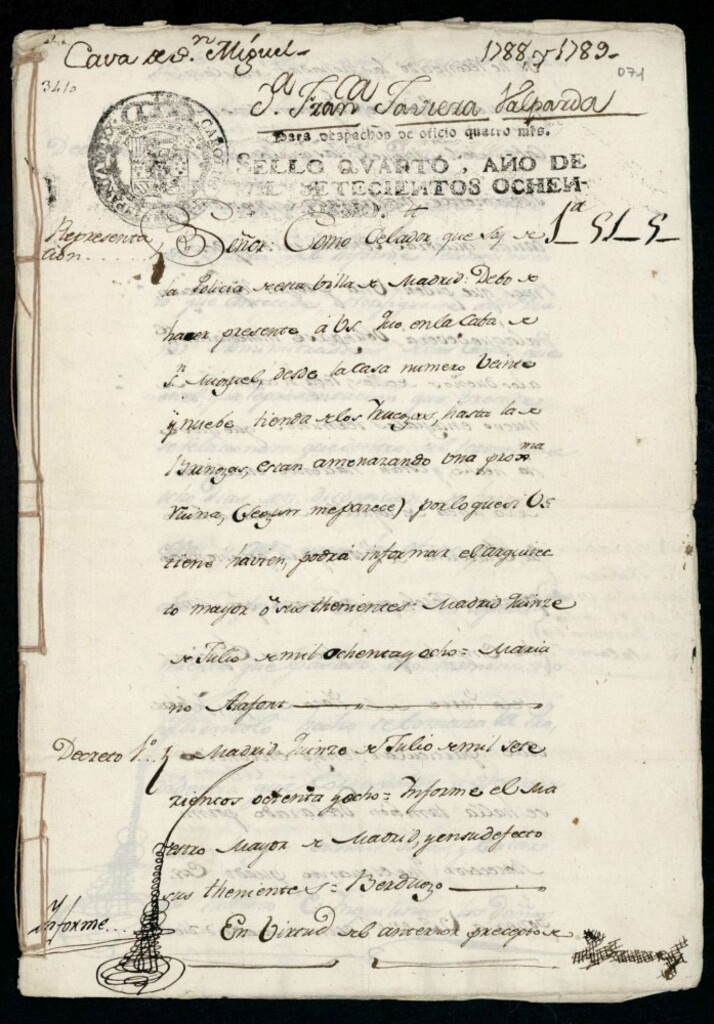 Cava de Sn. Miguel
1788 y 1789
071
341
Da. Franca Javiera Valparda
Para despachos de oficio quatro mrs.
SELLO QVARTO, AÑO DE
MIL SETECIENTOS OCHEN-
Representa
cion....
Señor: Como Celador que soy de
la Policia de esta Villa de Madrid: Debo de
hacer presente á Vs. Que en la Caba de
Sn. Miguel, desde la Casa numero Veinte
y nuebe tienda de los hasta la de
estan amenazando una proxma
Ruina, (segun me parece) por lo que si Vs
tiene havien, podrá informar el arquitec
to mayor ô sus thenientes. Madrid Quinze
de Julio de mil ochenta y ocho = Maria
no
Decreto 1o.
Madrid Quinze de Julio de mil sete
zientos ochenta y ocho = Informe el Ma
estro Mayor de Madrid, y en su defecto
sus theniente s = Berdugo
Informe...
En Virtud del anterior precepto de